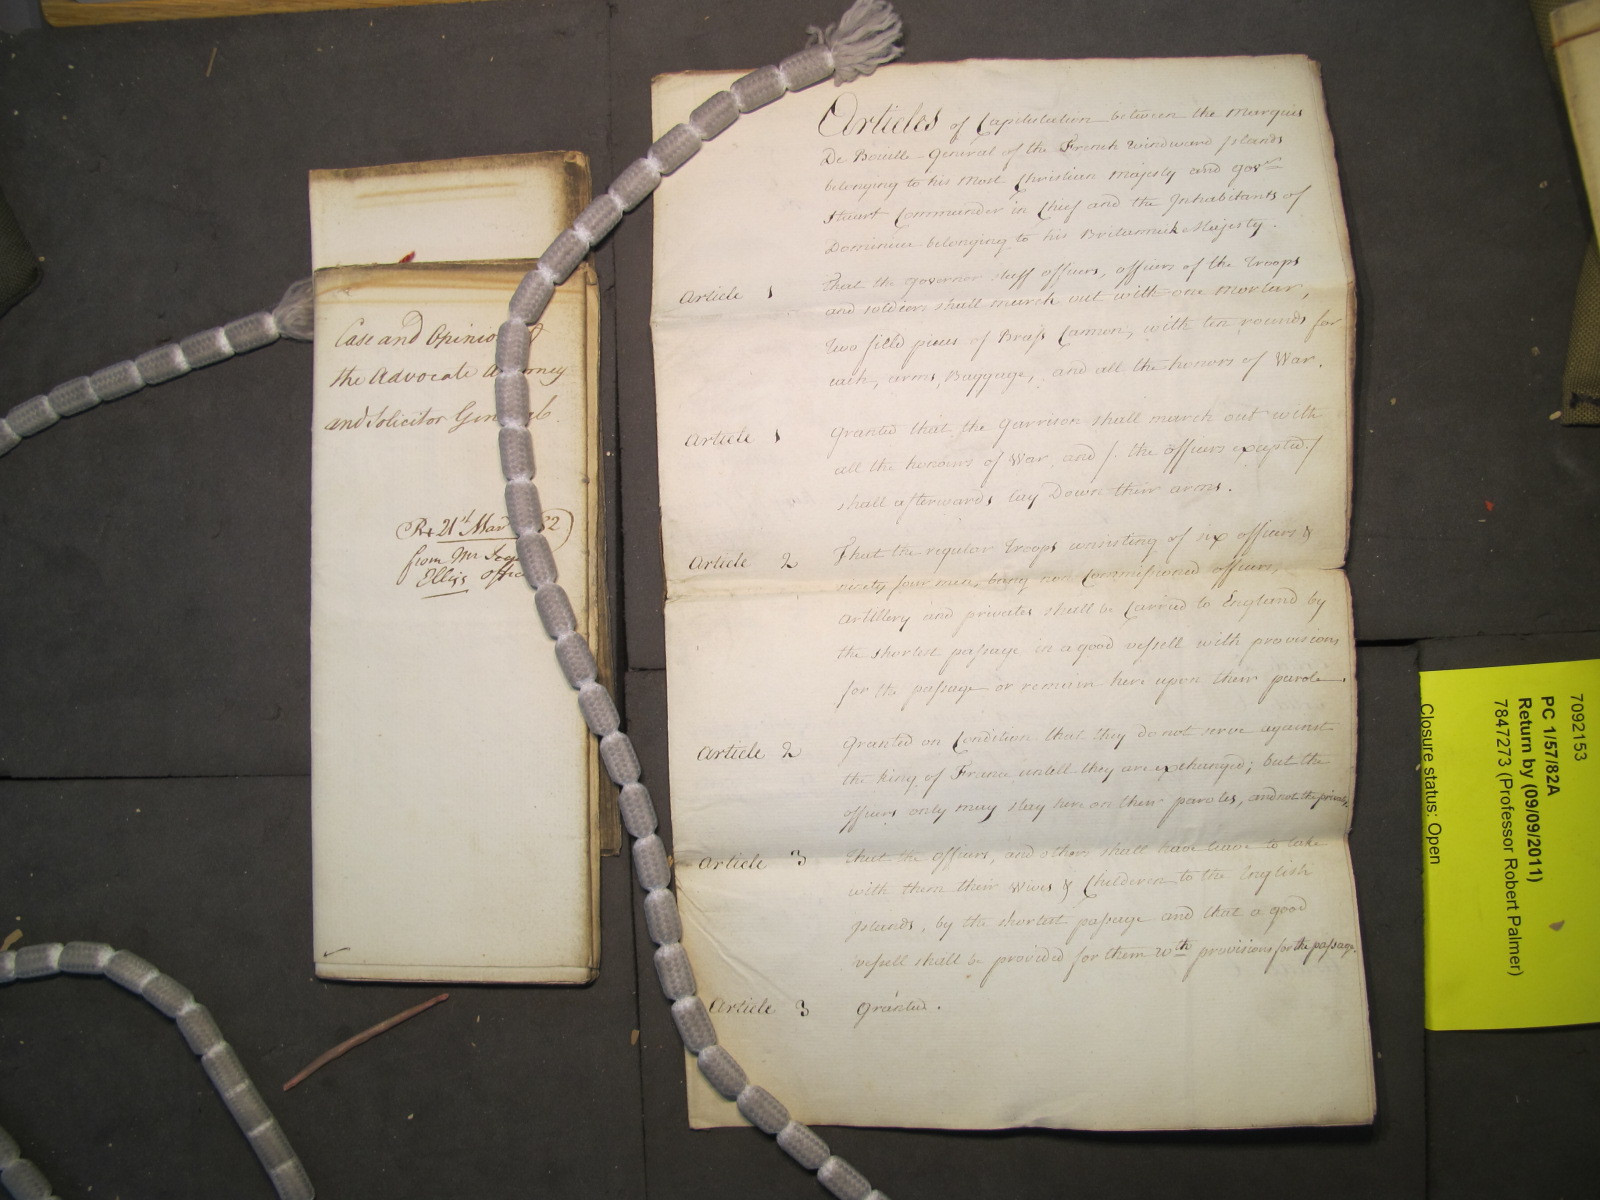 Case and Opinio
the Advocate A rney
and Solicitor Gen al
Rx 21st Mar 82)
from Mr
Ellis offic
Articles of Capitulation between the Marquis
De Bouille General of the French Windward Islands
belonging to his Most Christian Majesty and Govrr
Stuart Commander in Chief and the Inhabitants of
Dominica belonging to his Britannick Majesty.
Article 1 That the Governor staff officers, officers of the Troops
and soldiers shall march out with one Mortar,
two field pieces of Brass Cannon, with ten rounds for
each, arms, Baggage, and all the honors of War.
Article 1 Granted that the Garrison shall march out with
all the honours of War, and /. the officers excepted /
shall afterwards lay Down their arms.
Article 2 That the regular Troops consisting of six officers &
ninety four men, being non Commissioned officers,
Artillery and privates shall be Carried to England by
the shortest passage in a good vessell with provisions
for the passage or remain here upon their parole.
Article 2 Granted on Condition that they do not serve against
the King of France untill they are exchanged; but the
officers only may stay here on their paroles, and not the privates.
Article 3 That the officers, and others shall have leave to take
with them their Wives & Childeren to the English
Islands, by the shortest passage and that a good
vessell shall be provided for them wth provisions for the passage.
Article 3 Granted.
7092153
PC 1/57/82A
Return by (09/09/2011)
7847273 (Professor Robert Palmer)
Closure status: Open